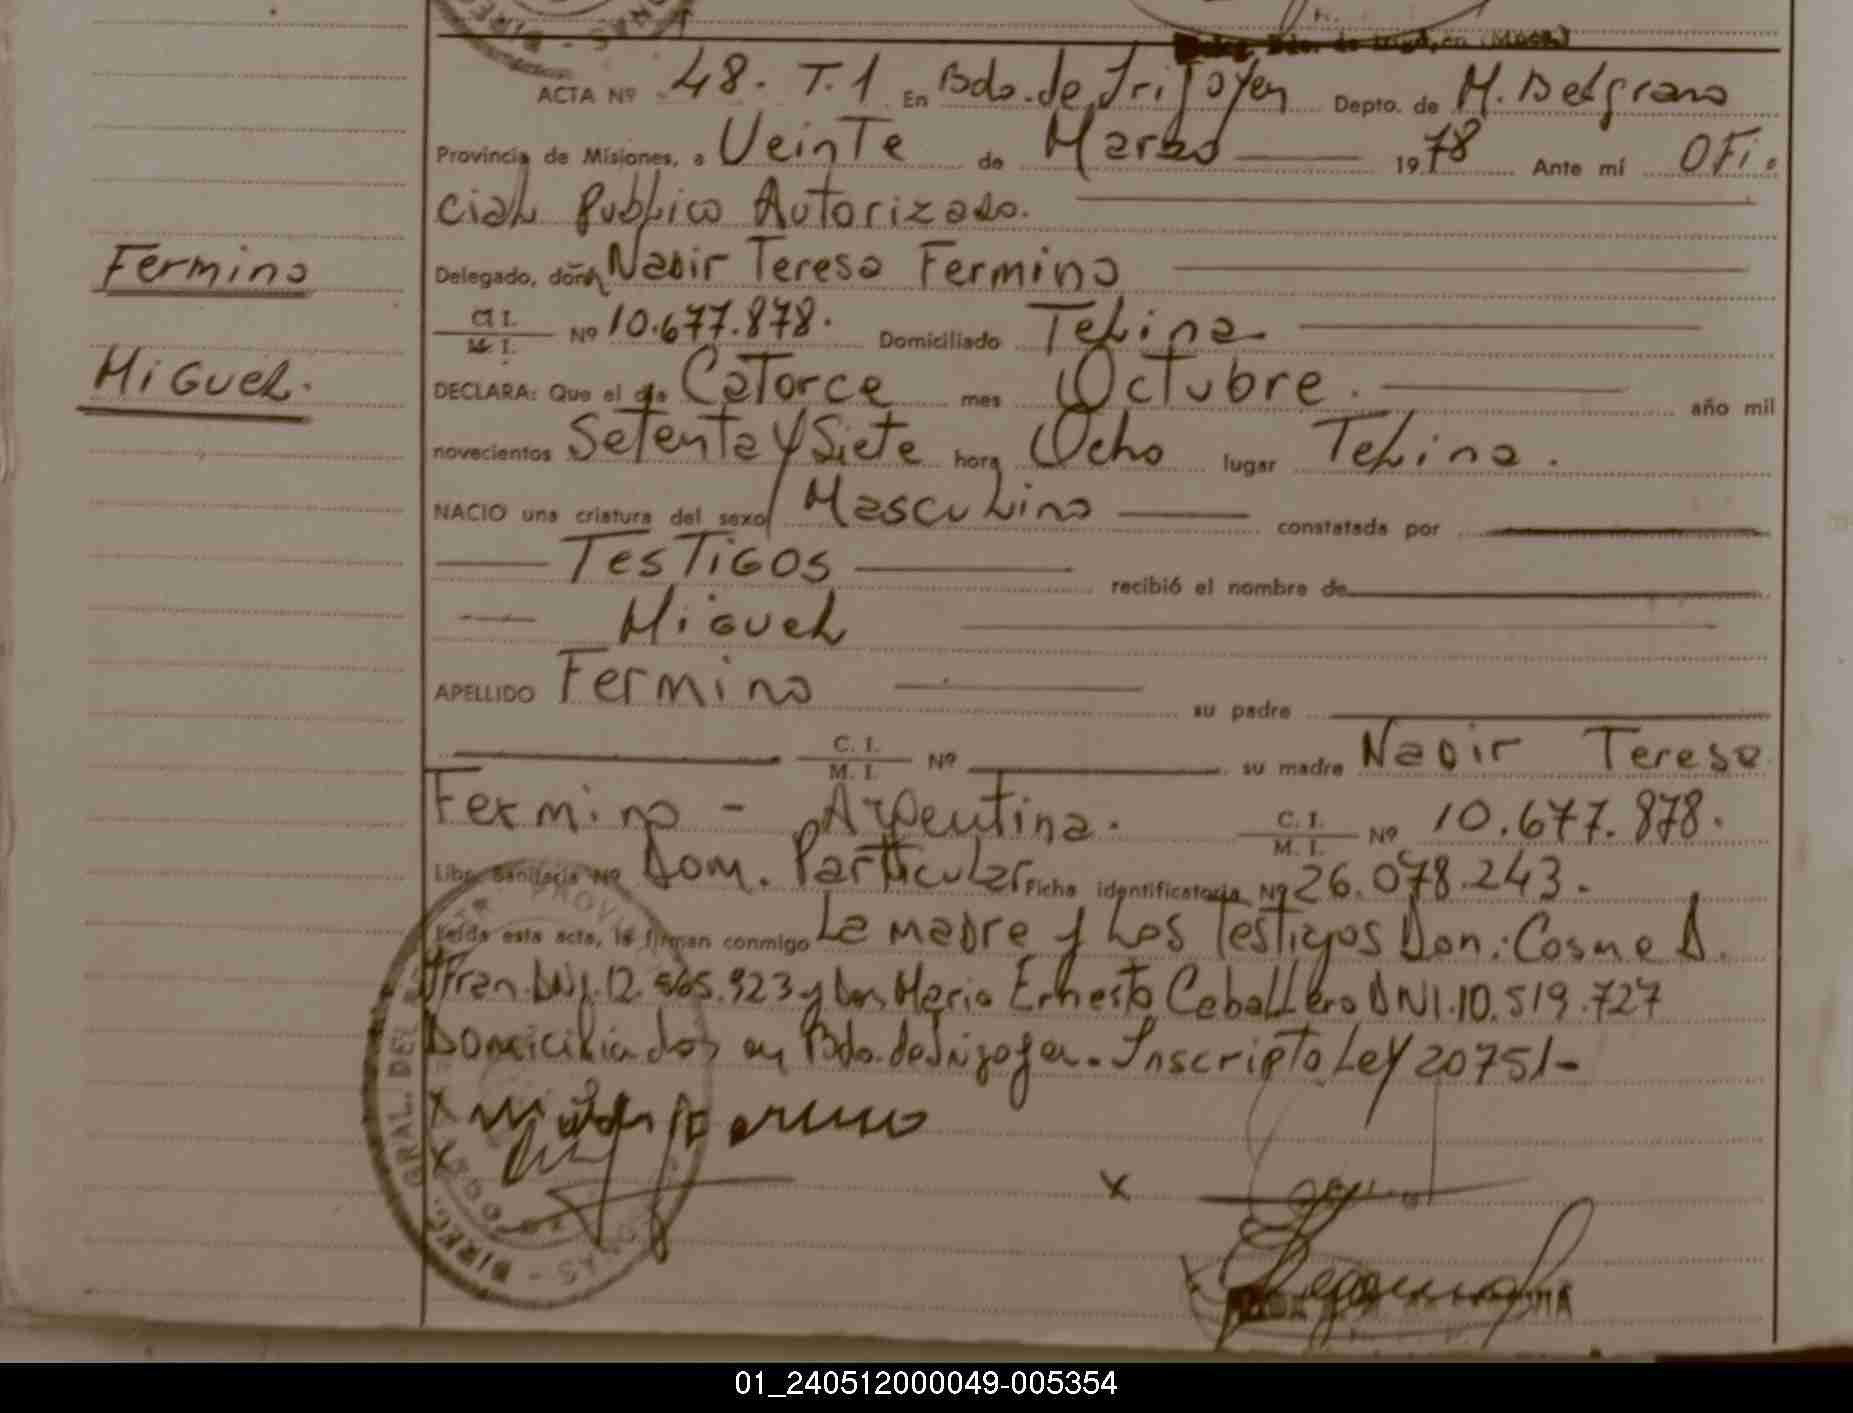 ACTA Nº 48. T.1 En Bdo. de Irigoyen Depto. de M. Belgrano
Provincia de Misiones, a Veinte de Marzo 1978 Ante mí OFi.
cial Publico Autorizado.
Fermino
Delegado, doña Nadir Teresa Fermino
C. I.
M. I.
Nº 10.677.878. Domiciliado Telina
Miguel.
DECLARA: Que el día Catorce mes Octubre. año mil
novecientos Setenta y Siete hora Ocho lugar Telina.
NACIO una criatura del sexo Masculino constatada por
TesTiGos recibió el nombre de
Miguel
APELLIDO Fermino su padre
C. I.
M. I.
Nº su madre Nadir Teresa
Fermino - Argentina. C. I.
M. I.
Nº 10.677.878.
Libr. Sanitaria Nº Dom. Particular Ficha identificatoria Nº 26.078.243.
Leída esta acta, la firman conmigo La madre y Los Testigos Don: Cosme D.
DNI. 12.565.923 y Don Mario Ernesto Caballero DNI. 10.519.727
Domiciliados en Bdo. de Irigoyen. Inscripto Ley 20751-
X
X
X
GRAL. DEL
DIREC.
PROVIN
01_240512000049-005354